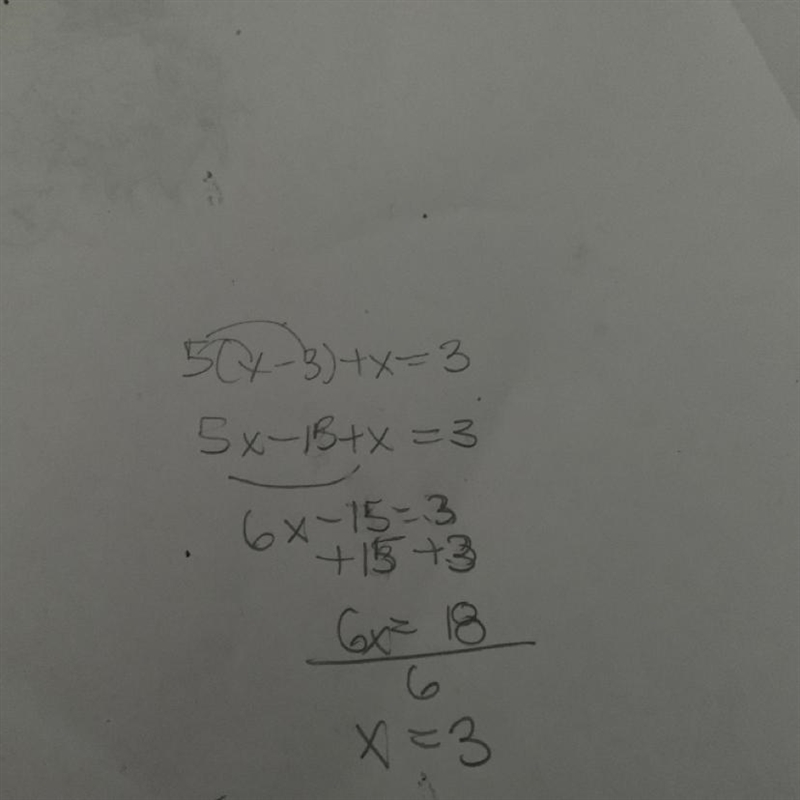 5(x-3)+x=3
5x-15+x=3
6x-15=3
+15 +3
6x= 18
6
x=3